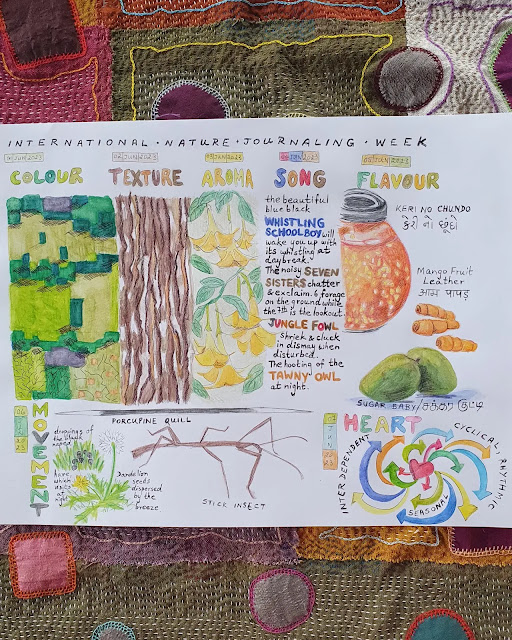 INTERNATIONAL · NATURE · JOURNALING · WEEK
JUN 2023
02 JUN 2023
03 JUN 2023
JUN 2023
JUN 2023
COLOUR
TEXTURE
AROMA
SONG
FLAVOUR
the beautiful
blue black
WHISTLING
SCHOOLBOY will
wake you up with
its whistling at
daybreak.
The noisy SEVEN
SISTERS chatter
& exclaim. 6 forage
on the ground while
the 7th is the lookout.
JUNGLE FOWL
Shriek & cluck
in dismay when
disturbed.
The hooting of the
TAWNY OWL
at night.
KERI NO CHUNDO
કેરી નો છૂંદો
Mango Fruit
Leather
आम पापड़
SUGAR BABY/சக்கர குட்டி
06 JUN 2023
MOVEMENT
PORCUPINE QUILL
drawings of
the
Dandelion
seeds
dispersed
by the
breeze
STICK INSECT
JUN 2023
HEART
INTER DEPENDENT
CYCLICAL, RHYTHMIC
SEASONAL